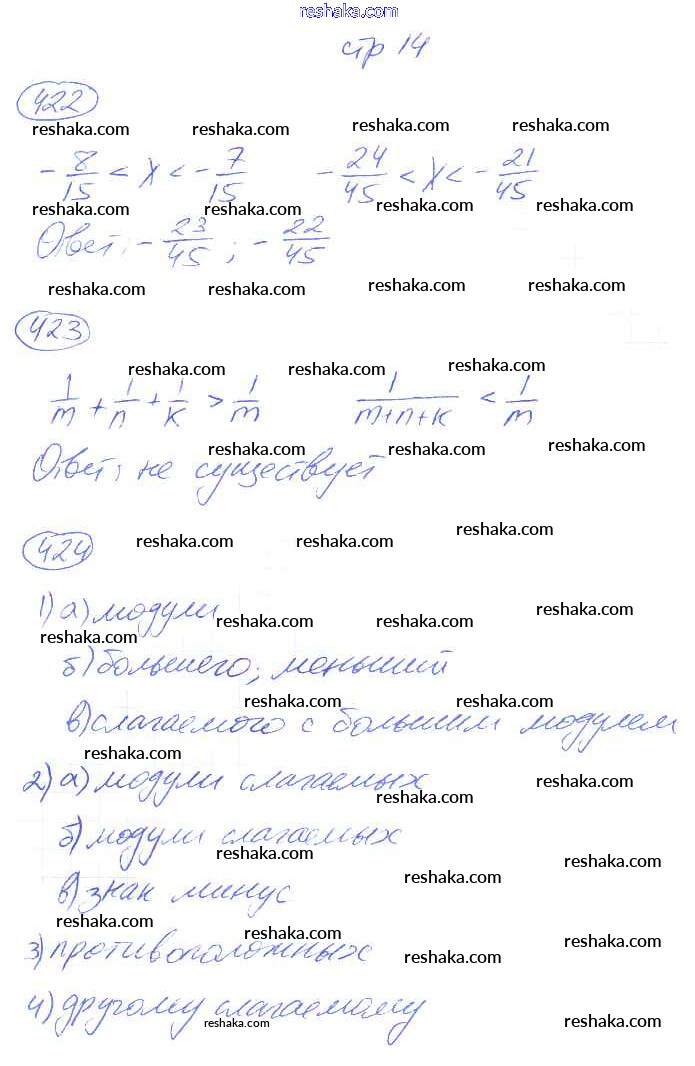 reshaka.com
стр 14
422
reshaka.com reshaka.com reshaka.com reshaka.com
-8/15 < x < -7/15 -24/45 < x < -21/45
reshaka.com reshaka.com reshaka.com reshaka.com
Ответ: -23/45; -22/45
reshaka.com reshaka.com reshaka.com reshaka.com
423
reshaka.com reshaka.com reshaka.com
1/m + 1/n + 1/k > 1/m 1/(m+n+k) < 1/m
reshaka.com reshaka.com reshaka.com
Ответ: не существует
424
reshaka.com reshaka.com reshaka.com
1) а) модули
reshaka.com reshaka.com reshaka.com reshaka.com
б) большего; меньший
reshaka.com reshaka.com
в) слагаемого с большим модулем
reshaka.com
2) а) модули слагаемых
reshaka.com reshaka.com
б) модули слагаемых
reshaka.com reshaka.com
в) знак минус
reshaka.com reshaka.com
3) противоположных
reshaka.com reshaka.com
4) другому слагаемому
reshaka.com reshaka.com